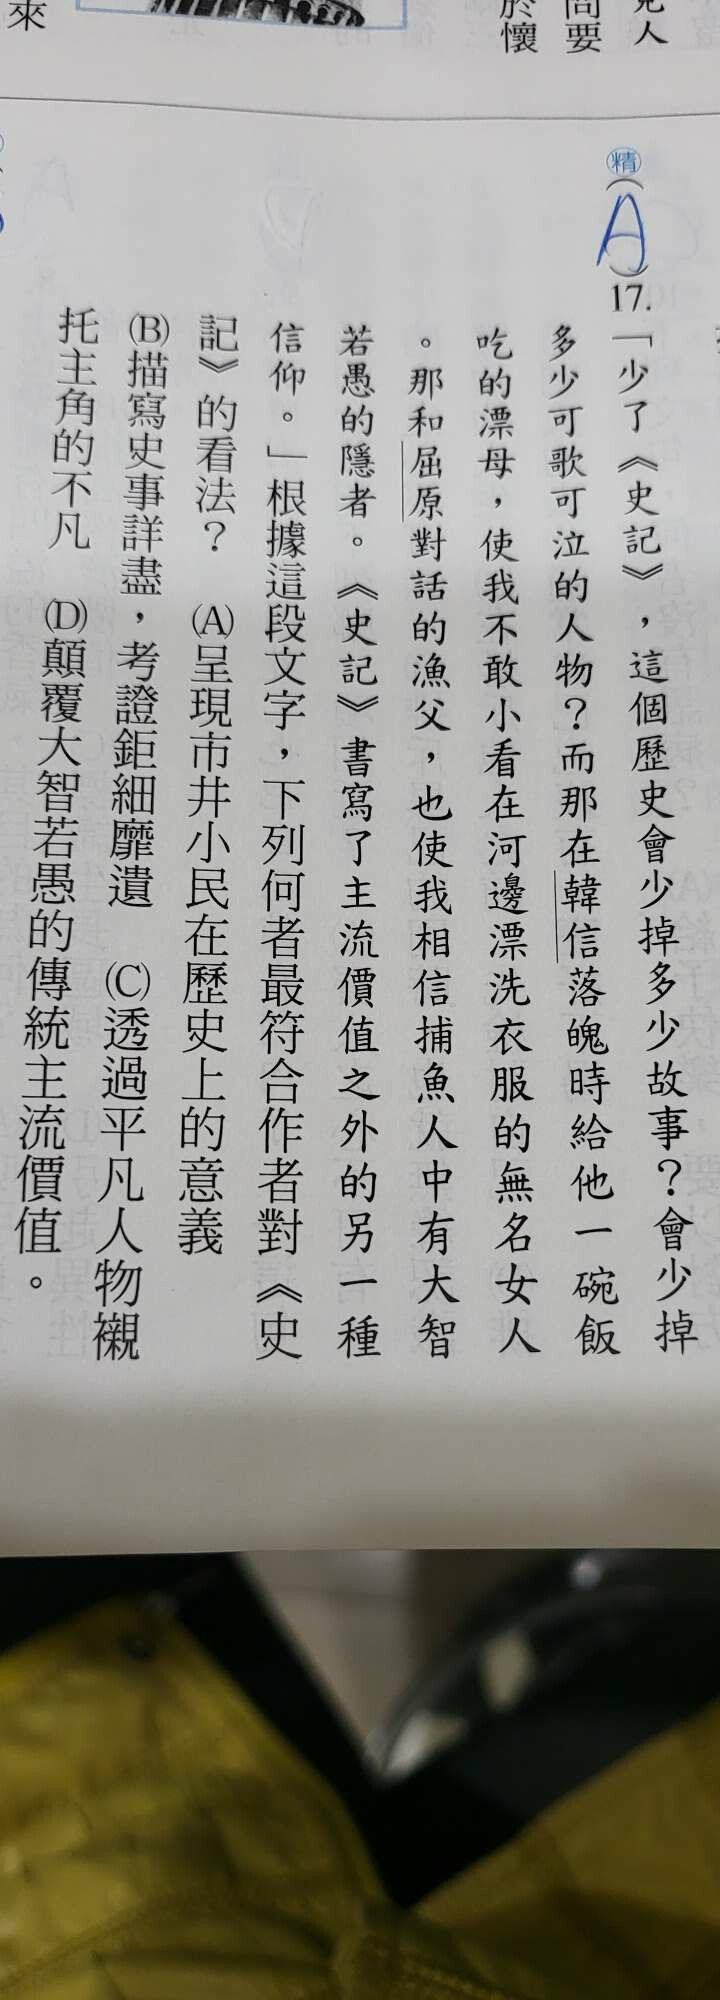 見人
問要
於懷
來
精(A)17.「少了《史記》，這個歷史會少掉多少故事？會少掉
多少可歌可泣的人物？而那在韓信落魄時給他一碗飯
吃的漂母，使我不敢小看在河邊漂洗衣服的無名女人
。那和屈原對話的漁父，也使我相信捕魚人中有大智
若愚的隱者。《史記》書寫了主流價值之外的另一種
信仰。」根據這段文字，下列何者最符合作者對《史
記》的看法？　(A)呈現市井小民在歷史上的意義
(B)描寫史事詳盡，考證鉅細靡遺　(C)透過平凡人物襯
托主角的不凡　(D)顛覆大智若愚的傳統主流價值。